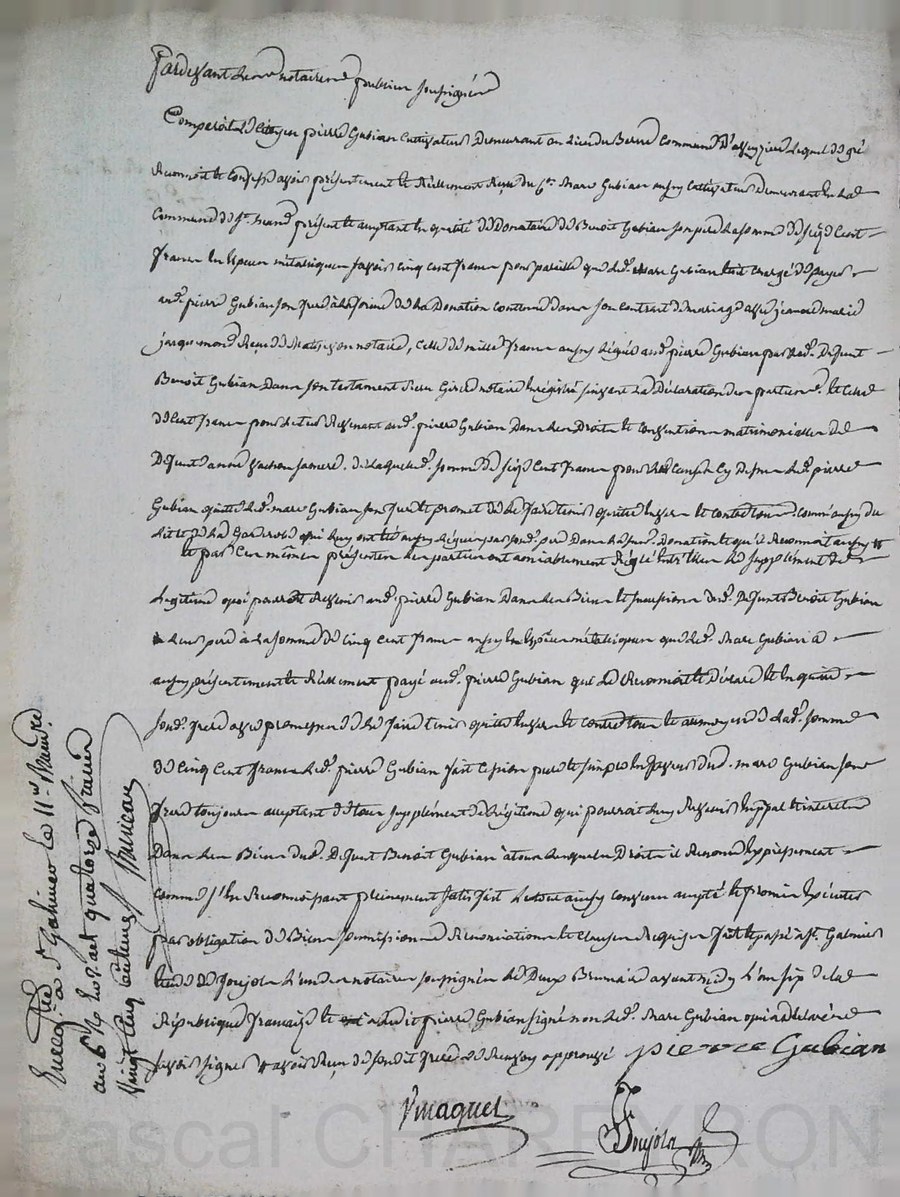 Pardevant les notaires publics soussignés
Comparoit le Citoyen pierre Gubian Cultivateur Demeurant au lieu du Commune D'aveyzieu lequel de gré
Reconnoit et Confesse avoir présentement et Réellement Reçu du Cen. Marc Gubian aussy Cultivateur demeurant en lad.
Commune de St. présent et acceptant en qualité de Donataire de Benoit Gubian son père la somme de seize Cent
francs en Espèces métalliques savoir Cinq Cent francs pour pareille que led. Marc Gubian étoit chargé de payer
aud. pierre Gubian son frère à la forme de la Donation Contenue dans son Contrat de mariage avec jeanne marie
jacquemond Reçu notaire, Celle de mille francs aussy léguée aud. pierre Gubian par led. Défunt
Benoit Gubian Dans son testament Reçu notaire Enrégistré suivant la Déclaration des parties. et Celle
de Cent francs pour Revenant aud. pierre Gubian Dans les Droits et Conventions matrimoniales de
Défunte anne sa mère. de laquelle d. somme de seize Cent francs pour les Causes Cy dessus led. pierre
Gubian quitte led. marc Gubian son frère et promet de le faire tenir quitte Envers et Contre tous. Comme aussy du
Lit et de la Garderobe qui luy ont été aussy légués par sond. père Dans lad. Donation et qu'il Reconnoit aussy
et par Ces mêmes présentes les parties ont amiablement Réglé Entr'Elles le supplément de
Légitime qui pourroit Revenir aud. pierre Gubian Dans les Biens et succession dud. Défunt Benoit Gubian
leur père à la somme de Cinq Cent francs aussy En Espèces métalliques que led. Marc Gubian a
aussy présentement et Réellement payé aud. pierre Gubian qui le Reconnoit et Déclare et En quitte
sond. frère avec promesse de le faire tenir quitte Envers et Contre tous et au moyen de lad. somme
de Cinq Cent francs led. pierre Gubian fait Cession pure et simple En faveur dud. marc Gubian son
frère toujours acceptant de tous supplément de Légitime qui pourroit luy Revenir En ppal. et interets
Dans les Biens dud. Défunt Benoit Gubian à tous lesquels Droits il Renonce Expressement
Comme s'En Reconnoissant pleinement satisfait Le tout ainsy Convenu accepté et promis Exécuter
par obligation de Biens soumissions Renonciations et Clauses Requises fait et passé à St. Galmier
Etude de Joujola L'un des notaires soussignés Le Deux Brumaire avant midy L'an six de la
République française et a ledit pierre Gubian signé non led. Marc Gubian qui a déclaré ne
savoir signer avoir Reçu de sondit frère approuvé pierre Gubian
Vinaquet
Joujola
Enregtré. à St. Galmier le 11. Brumre.
an 6 Reçu quatorze francs
vingt Cinq Centimes
Pascal CHAREYRON